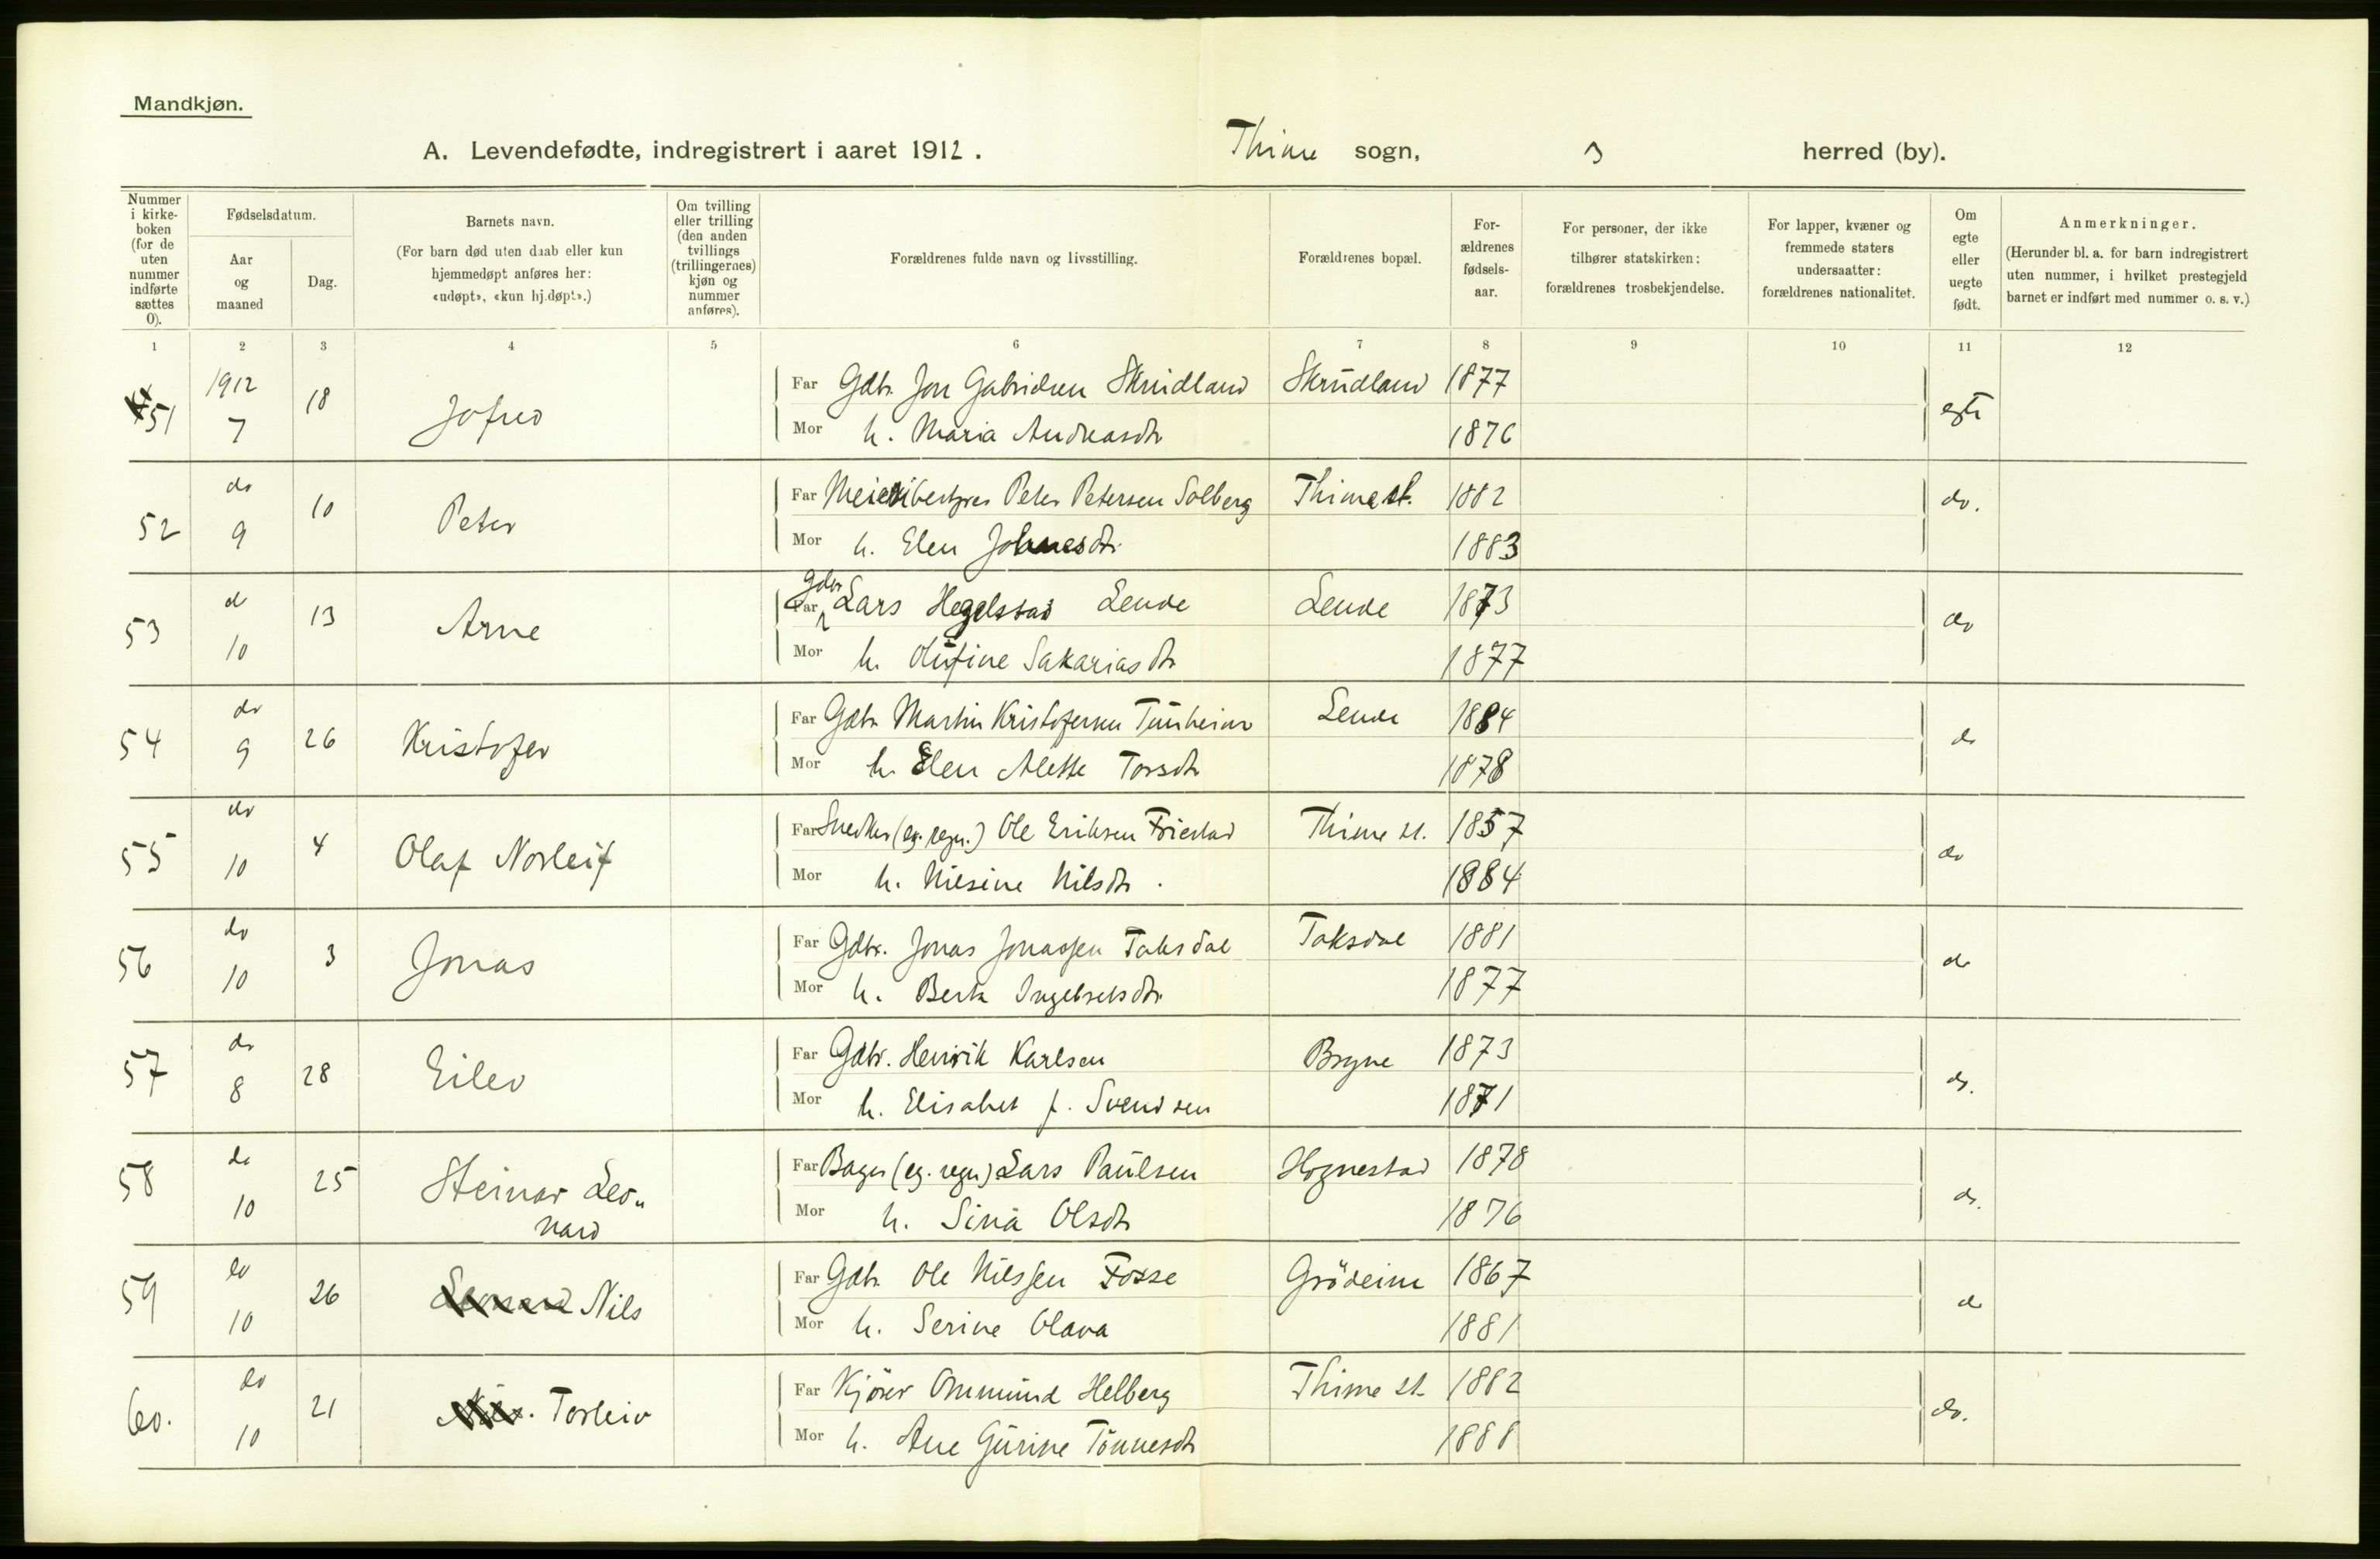 Mandkjøn.
A. Levendefødte, indregistrert i aaret 1912. Thime sogn, herred (by).
Nummer i kirke-boken (for de uten nummer indførte sættes 0).
Fødselsdatum.
Aar og maaned
Dag.
Barnets navn.
(For barn død uten daab eller kun hjemmedøpt anføres her: «udøpt», «kun hj.døpt».)
Om tvilling eller trilling (den anden tvillings (trillingernes) kjøn og nummer anføres).
Forældrenes fulde navn og livsstilling.
Forældrenes bopæl.
For-ældrenes fødsels-aar.
For personer, der ikke tilhører statskirken: forældrenes trosbekjendelse.
For lapper, kvæner og fremmede staters undersaatter: forældrenes nationalitet.
Om egte eller uegte født.
Anmerkninger.
(Herunder bl. a. for barn indregistrert uten nummer, i hvilket prestegjeld barnet er indført med nummer o. s. v.)
1 2 3 4 5 6 7 8 9 10 11 12
51 1912 7 18 Jofred Far Gdbr. Jon Gabrielsen Skrudland Skrudland 1877 egte
Mor h. Maria Andreasdtr 1876
52 do 9 10 Peter Far Meieribestyrer Peter Petersen Solberg Thime st. 1882 do.
Mor h. Elen Johnesdtr. 1883
53 do 10 13 Arne Far Gdbr Lars Hegelstad Lende Lende 1873 do
Mor h. Olufine Sakariasdtr 1877
54 do 9 26 Kristofer Far Gdbr Martin Kristofersen Tunheim Lende 1884 do
Mor h. Elen Alette Torsdtr 1878
55 do 10 4 Olaf Norleif Far Snedker (eg. regn.) Ole Eriksen Friestad Thime st. 1857 do
Mor h. Nilsine Nilsdtr. 1884
56 do 10 3 Jonas Far Gdbr. Jonas Jonassen Taksdal Taksdal 1881 do
Mor h. Berta Ingebretsdtr 1877
57 do 8 28 Eilev Far Gdbr. Henrik Karlsen Bryne 1873 do.
Mor h. Elisabet f. Svendsen 1871
58 do 10 25 Steinar Leo-nard Far Bager (eg. regn) Lars Paulsen Hognestad 1878 do.
Mor h. Sina Olsdtr 1876
59 do 10 26 Leonard Nils Far Gdbr Ole Nilssen Fosse Grödeim 1867 do
Mor h. Serine Olava 1881
60. do 10 21 Nils. Torleiv Far Kjører Ommund Helberg Thime st. 1882 do.
Mor h. Ane Gurine Tönnesdtr 1888